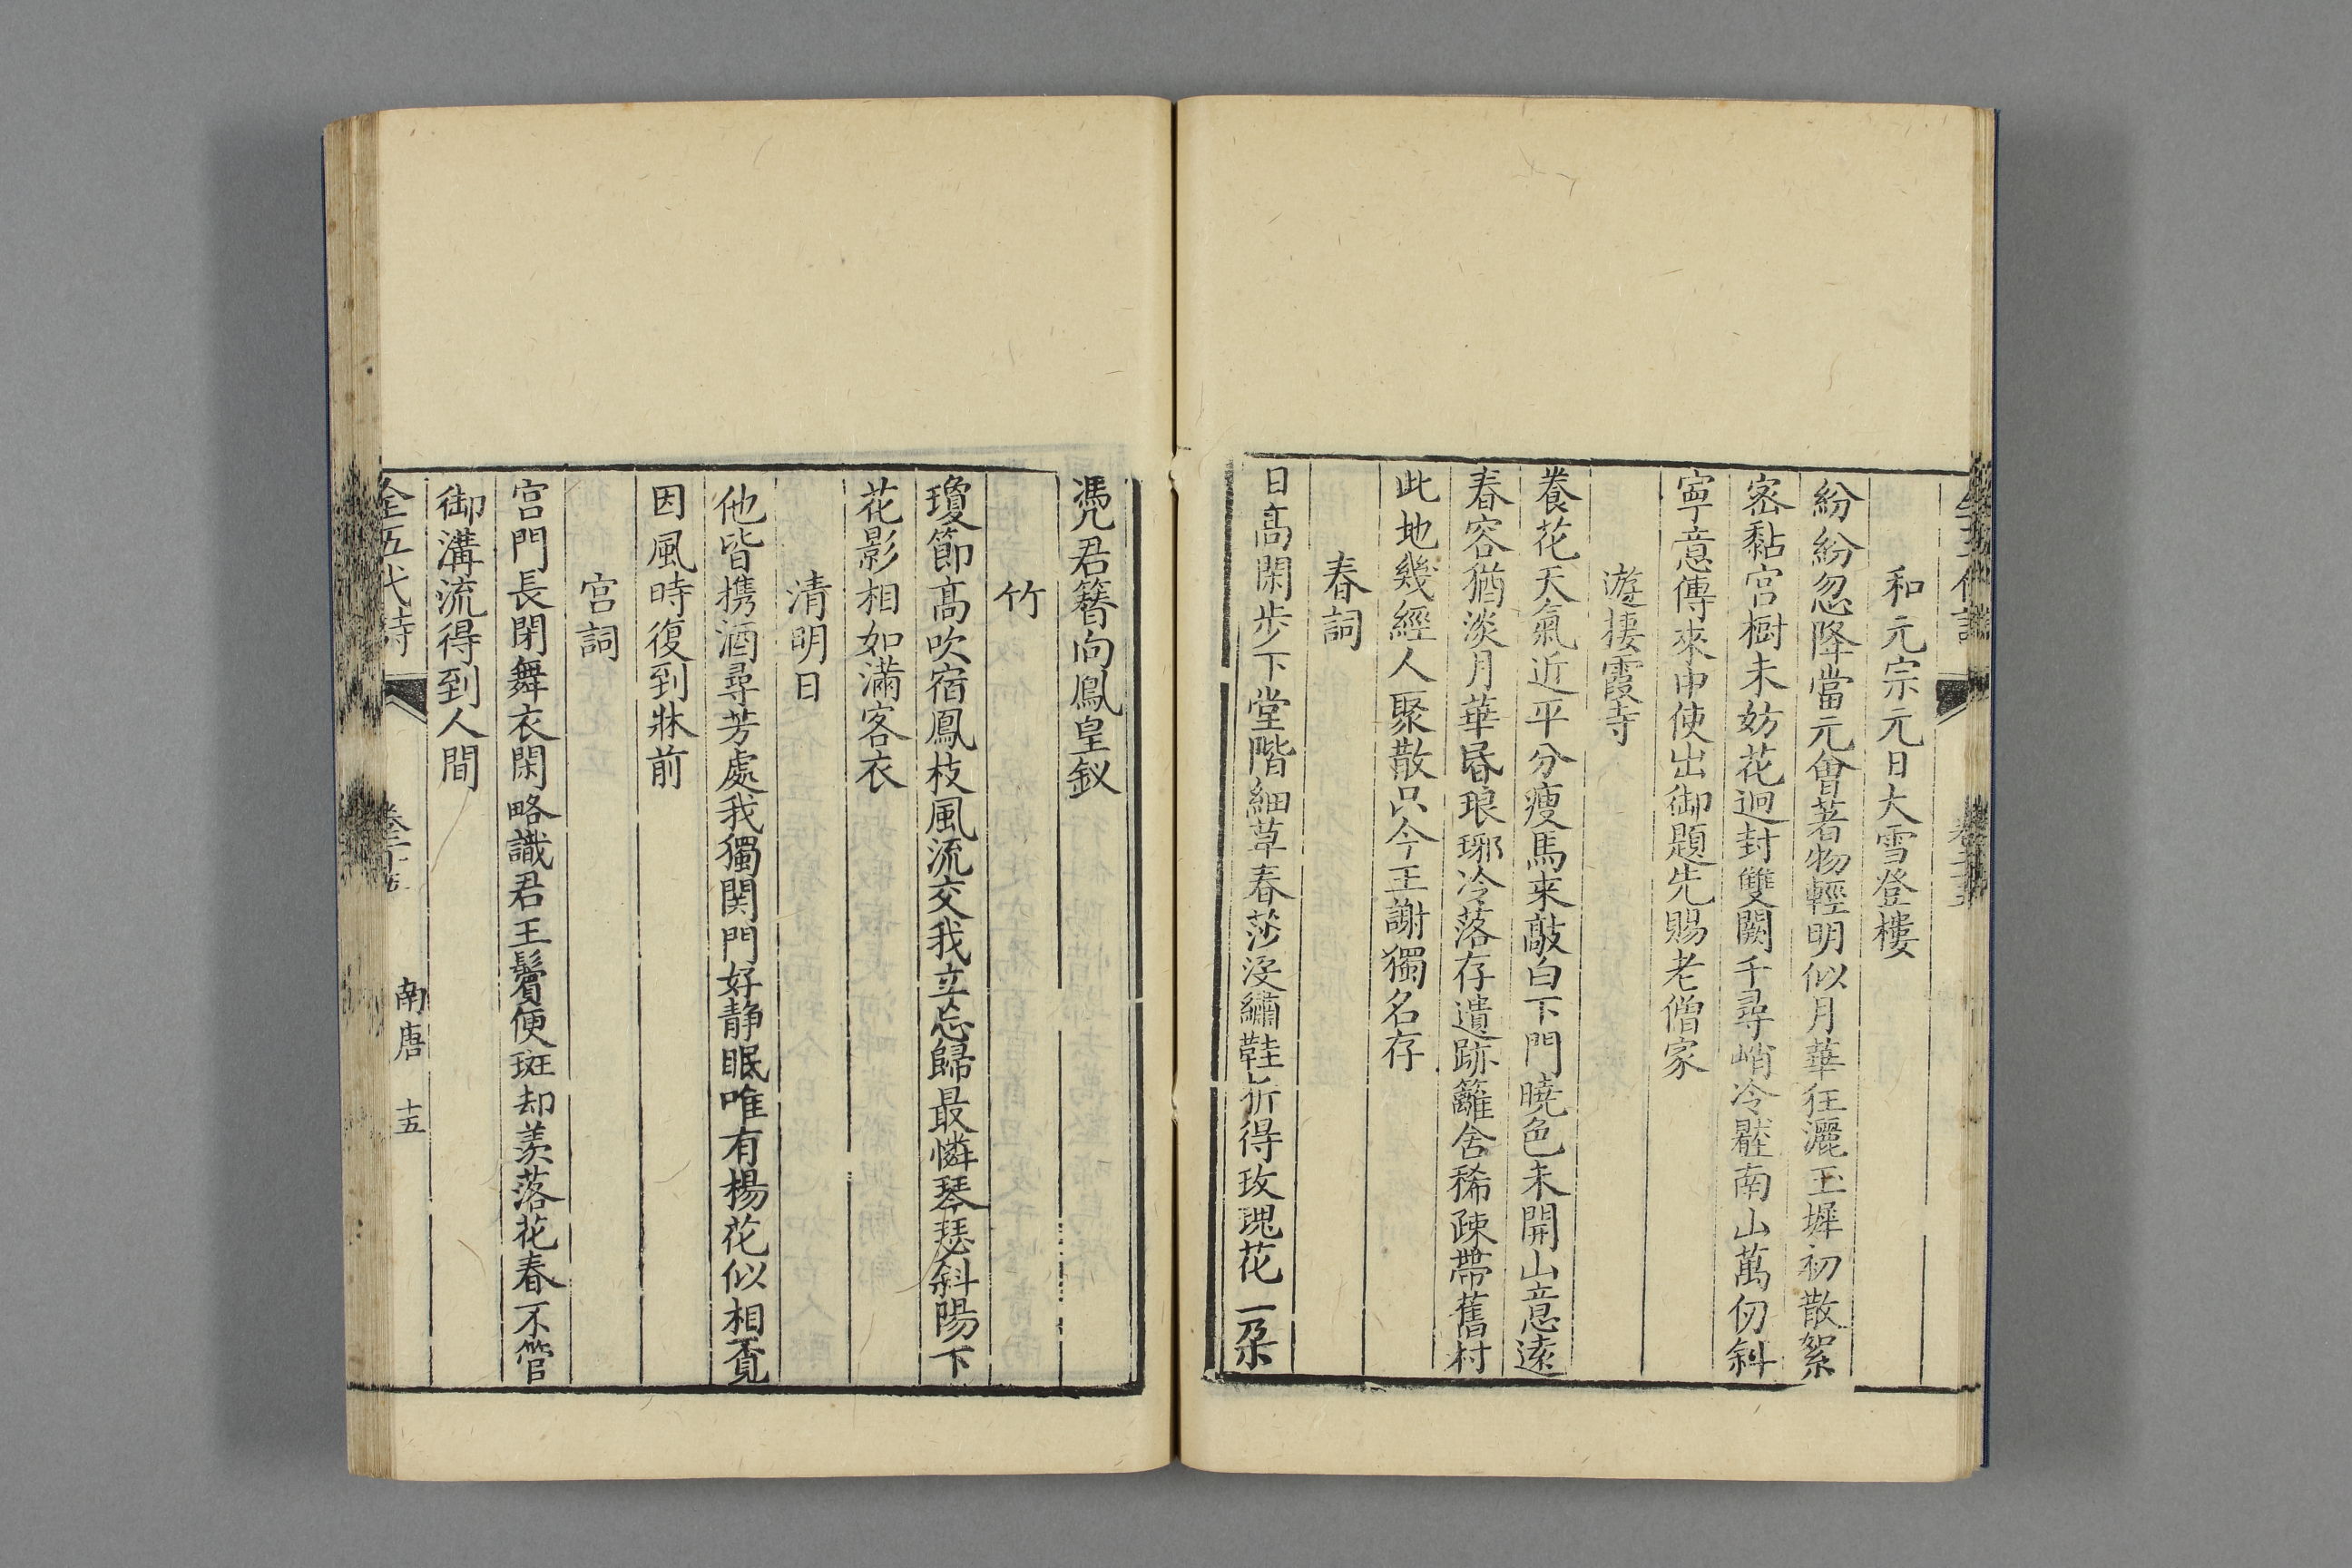 和元宗元日大雪登樓
紛紛忽降當元會著物輕明似月華狂灑玉墀初散絮
宻黏宫樹未妨花迥封雙闕千尋峭冷壓南山萬仞斜
寧意傳來中使出御題先賜老僧家
遊棲霞寺
養花天氣近平分瘦馬来敲白下門曉色未開山意遠
春容猶淡月華昬琅琊冷落存遺跡籬舍稀疎帶舊村
此地幾經人聚散只今王謝獨名存
春詞
日髙閑步下堂階細草春莎沒繡鞋折得玫瑰花一朶
凴君簪向鳳皇釵
竹
瓊節髙吹宿鳳枝風流交我立忘歸最憐琴瑟斜陽下
花影相如滿客衣
清明日
他皆携酒尋芳處我獨関門好静眠唯有楊花似相覔
因風時復到牀前
宫詞
宫門長閉舞衣閑略識君王鬢便斑却羨落花春不管
御溝流得到人間
全五代詩
卷三十五
南唐
十五